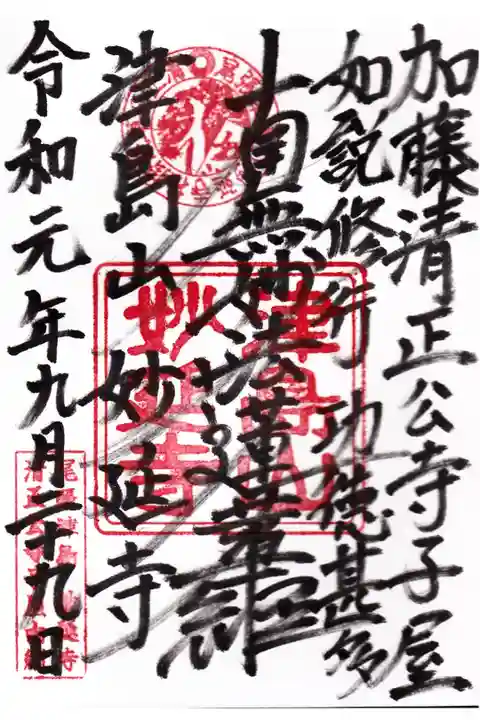 加藤清正公寺子屋
如説修行功徳甚多
南無妙法蓮華經
津島山妙延寺
令和元年九月二十九日
津島山
妙延寺